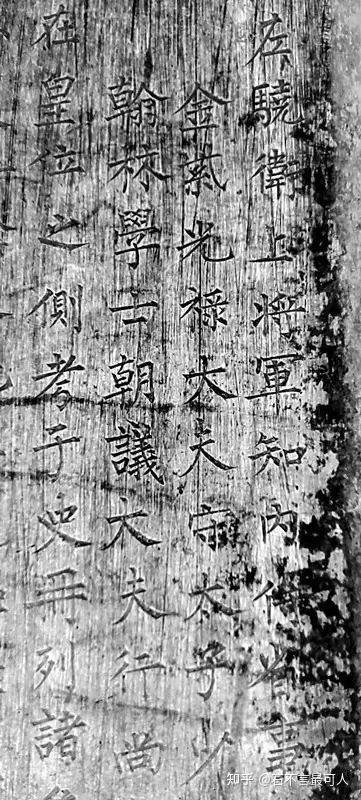 左驍衛上将軍知内侍省事
金紫光禄大夫守太子少
翰林學士朝議大夫行尚
在皇位之側考于史冊列諸
知乎 @若不言最可人